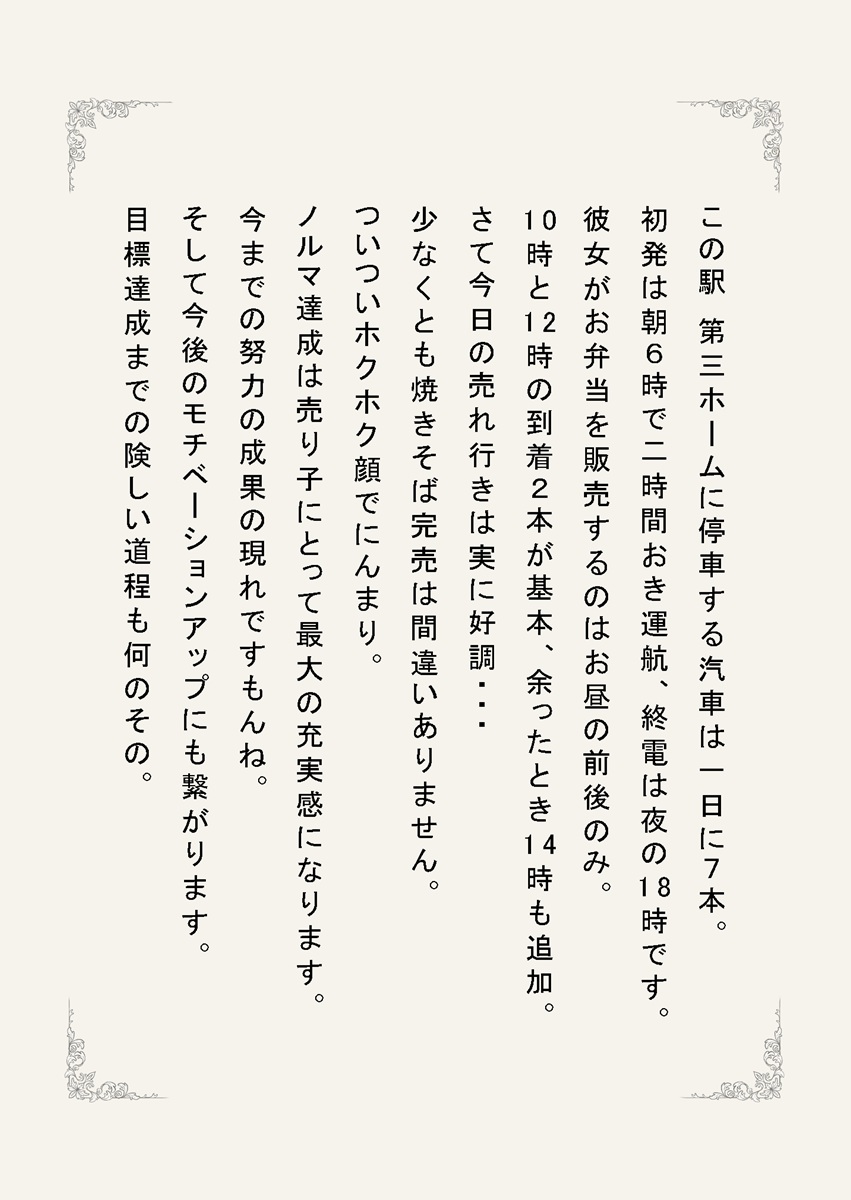 この駅 第三ホームに停車する汽車は一日に７本。
初発は朝６時で二時間おき運航、終電は夜の18時です。
彼女がお弁当を販売するのはお昼の前後のみ。
10時と12時の到着２本が基本、余ったとき14時も追加。
さて今日の売れ行きは実に好調・・・
少なくとも焼きそば完売は間違いありません。
ついついホクホク顔でにんまり。
ノルマ達成は売り子にとって最大の充実感になります。
今までの努力の成果の現れですもんね。
そして今後のモチベーションアップにも繋がります。
目標達成までの険しい道程も何のその。